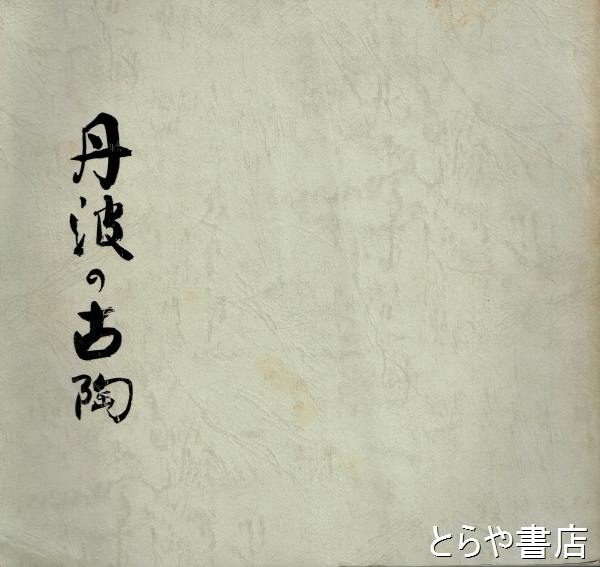 丹波の古陶
とらや書店